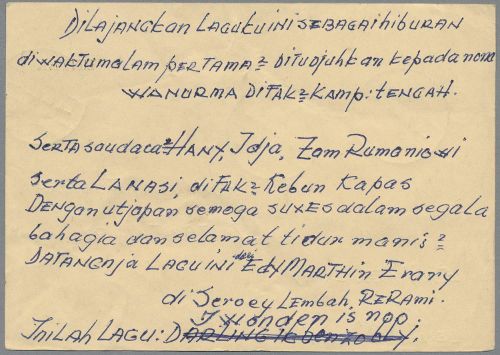 DiLAJANGKAN LAGUKU iNi SEBAGAi hiBURAN
di WAKTU MALAM PERTAMA2 DiTUDJUHKAN KEPADA nona
WANURMA Di FAK2 KAMP: TENGAH.
SERTA saudara2 HANY, Idja, Zom Rumoni
SERTA LANASI, di FAK2 Kebun KAPAS
DENGAN utjapan semoga SUXES dalam segala
bahagia dan selamat tidur manis2
DATANGNJA LAGU iNi dari Edy MARTHiN Erary
di Seroey LEMBAh, RERAMi.
Inilah LAGU: DARLING